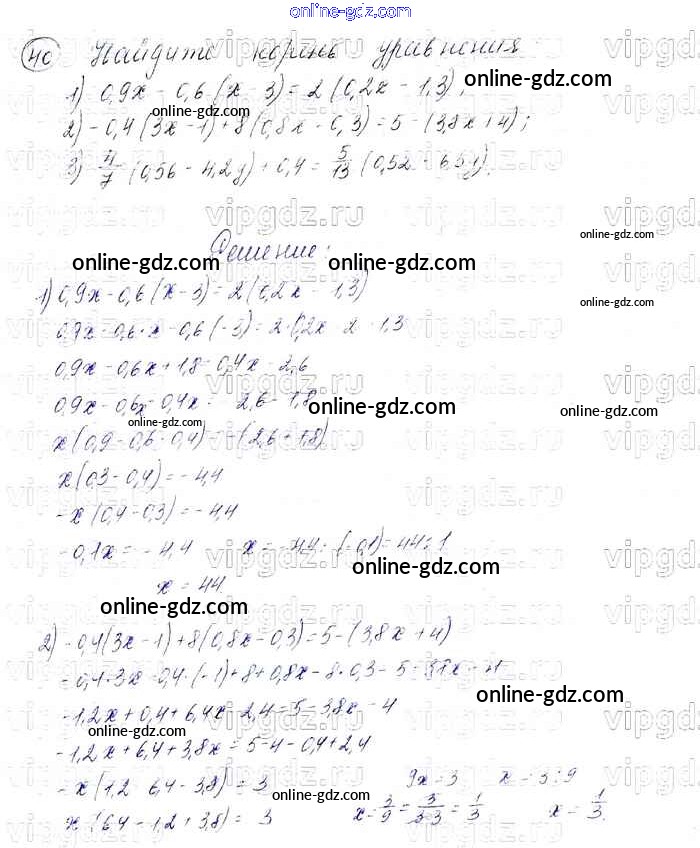 online-gdz.com
40 Найдите корень уравнения:
1) 0,9x - 0,6 (x - 3) = 2 (0,2x - 1,3);
online-gdz.com
2) -0,4 (3x - 1) + 8 (0,8x - 0,3) = 5 - (3,8x + 4);
3) 4/7 (0,56 - 4,2y) + 0,4 = 5/13 (0,52 - 6,5y).
vipgdz.ru
Решение:
online-gdz.com online-gdz.com
1) 0,9x - 0,6 (x - 3) = 2 (0,2x - 1,3)
0,9x - 0,6·x - 0,6 (-3) = 2·0,2x - 2·1,3
0,9x - 0,6x + 1,8 = 0,4x - 2,6
0,9x - 0,6x - 0,4x = -2,6 - 1,8
online-gdz.com
x (0,9 - 0,6 - 0,4) = -(2,6 + 1,8)
x (0,3 - 0,4) = -4,4
-x (0,4 - 0,3) = -4,4
-0,1x = -4,4 x = -4,4 : (-0,1) = 44 : 1
x = 44.
online-gdz.com
2) -0,4 (3x - 1) + 8 (0,8x - 0,3) = 5 - (3,8x + 4)
-0,4·3x - 0,4·(-1) + 8·0,8x - 8·0,3 = 5 - 3,8x - 4
-1,2x + 0,4 + 6,4x - 2,4 = 5 - 3,8x - 4
-1,2x + 6,4 + 3,8x = 5 - 4 - 0,4 + 2,4
-x (1,2 - 6,4 - 3,8) = 3 9x = 3 x = 3 : 9
x (6,4 - 1,2 + 3,8) = 3 x = 3/9 = 3/3·3 = 1/3 x = 1/3.